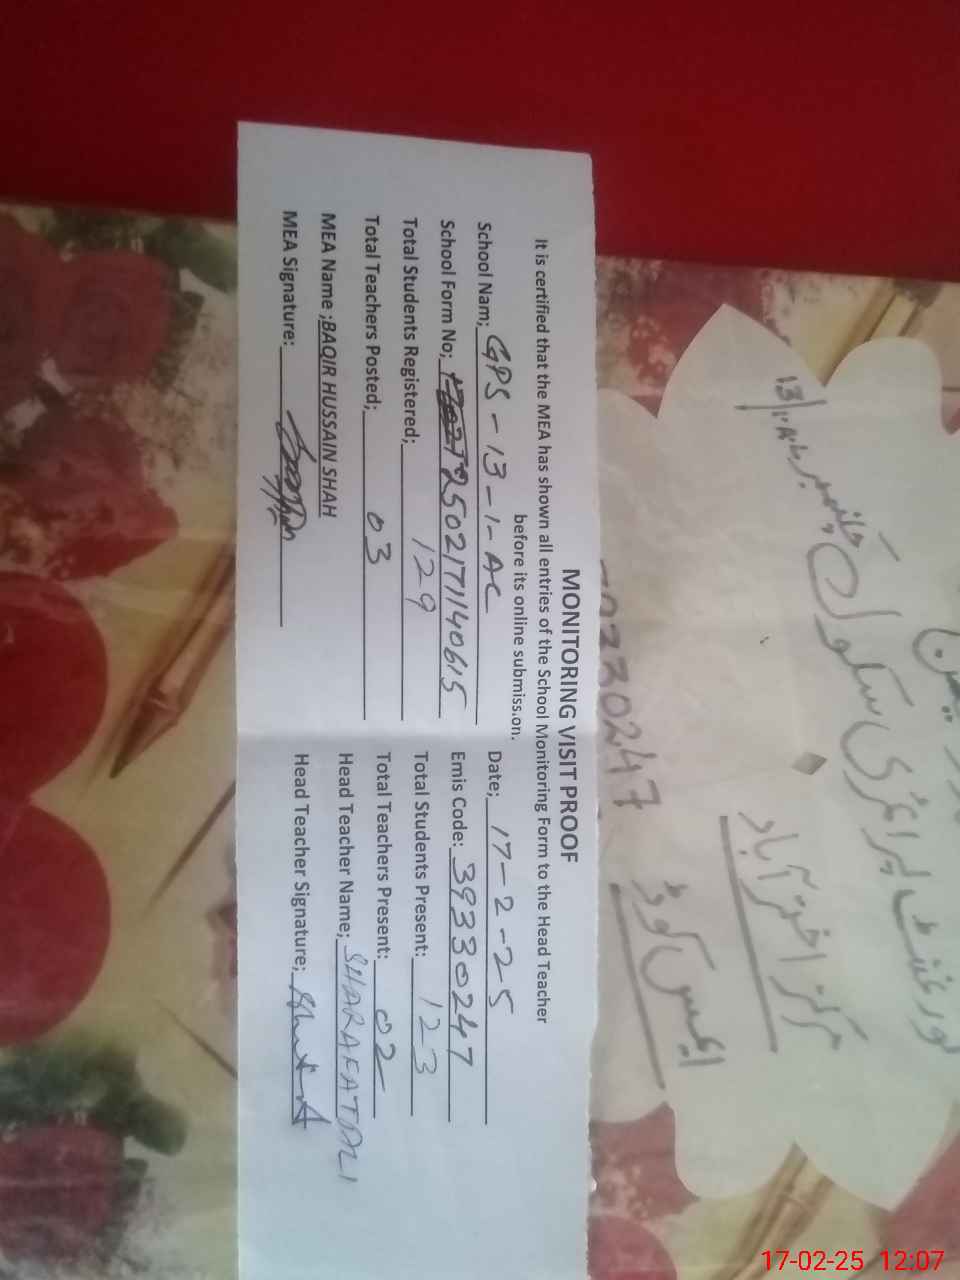 MONITORING VISIT PROOF
It is certified that the MEA has shown all entries of the School Monitoring Form to the Head Teacher
before its online submiss.on.
School Nam; GPS-13-1-AC Date; 17-2-25
School Form No; 2502171140615 Emis Code: 39330247
Total Students Registered; 129 Total Students Present: 123
Total Teachers Posted; 03 Total Teachers Present: 02
MEA Name ;BAQIR HUSSAIN SHAH Head Teacher Name; SHARAFAT ALI
MEA Signature: Head Teacher Signature;
گورنمنٹ پرائمری سکول
مرکز اختر آباد
ایمس کوڈ 39330247
17-02-25 12:07